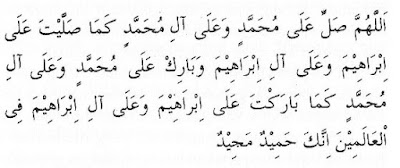 اَللّٰهُمَّ صَلِّ عَلَى مُحَمَّدٍ وَعَلَى آلِ مُحَمَّدٍ كَمَا صَلَّيْتَ عَلَى
اِبْرَاهِيْمَ وَعَلَى آلِ اِبْرَاهِيْمَ وَبَارِكْ عَلَى مُحَمَّدٍ وَعَلَى آلِ
مُحَمَّدٍ كَمَا بَارَكْتَ عَلَى اِبْرَاهِيْمَ وَعَلَى آلِ اِبْرَاهِيْمَ فِى
الْعَالَمِيْنَ اِنَّكَ حَمِيْدٌ مَجِيْدٌ